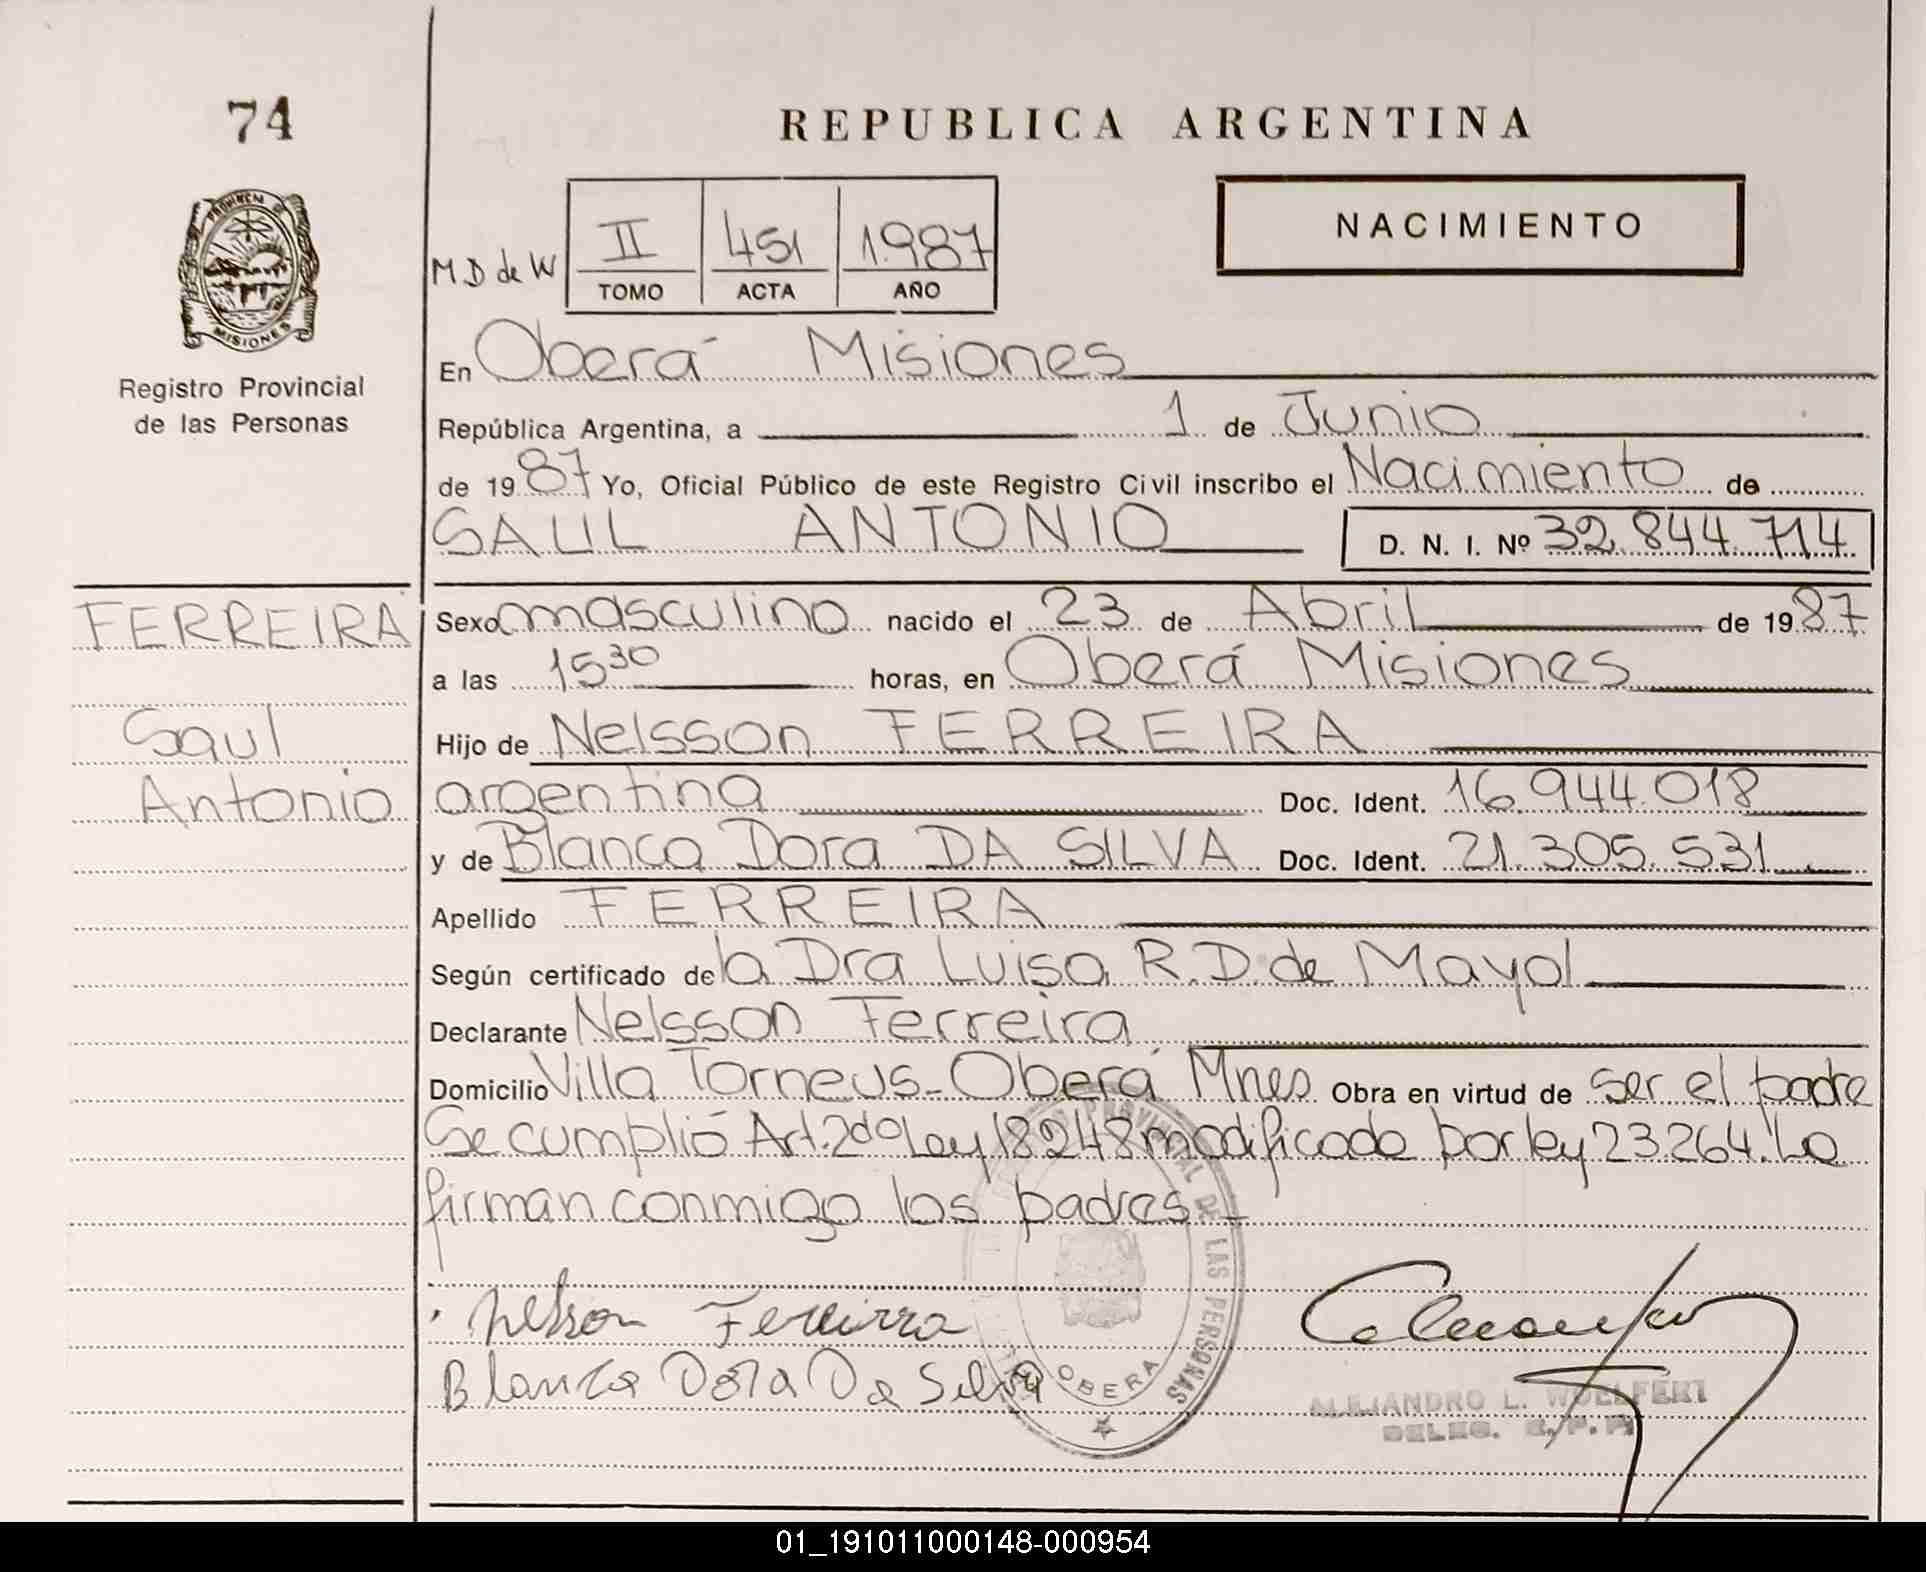 74
REPUBLICA ARGENTINA
PROVINCIA DE
MISIONES
Registro Provincial
de las Personas
M.D de W
II 451 1.987
TOMO ACTA AÑO
NACIMIENTO
En Oberá Misiones
República Argentina, a 1 de Junio
de 1987 Yo, Oficial Público de este Registro Civil inscribo el Nacimiento de
SAUL ANTONIO D. N. I. Nº 32.844.714
FERREIRA
Saul
Antonio
Sexo masculino nacido el 23 de Abril de 1987
a las 15 30 horas, en Oberá Misiones
Hijo de Nelsson FERREIRA
argentina Doc. Ident. 16.944.018
y de Blanca Dora DA SILVA Doc. Ident. 21.305.531
Apellido FERREIRA
Según certificado de la Dra Luisa R.D. de Mayol
Declarante Nelsson Ferreira
Domicilio Villa Torneus-Oberá Mnes Obra en virtud de ser el padre
Se cumplió Art. 2do Ley 18248 modificado por ley 23.264. La
firman conmigo los padres -
Nelsson Ferreirra
Blanca Dora Da Silva
PROVINCIAL DE LAS PERSONAS
OBERA
ALEJANDRO L. WOELFERT
DELEG. R. P. P.
01_191011000148-000954